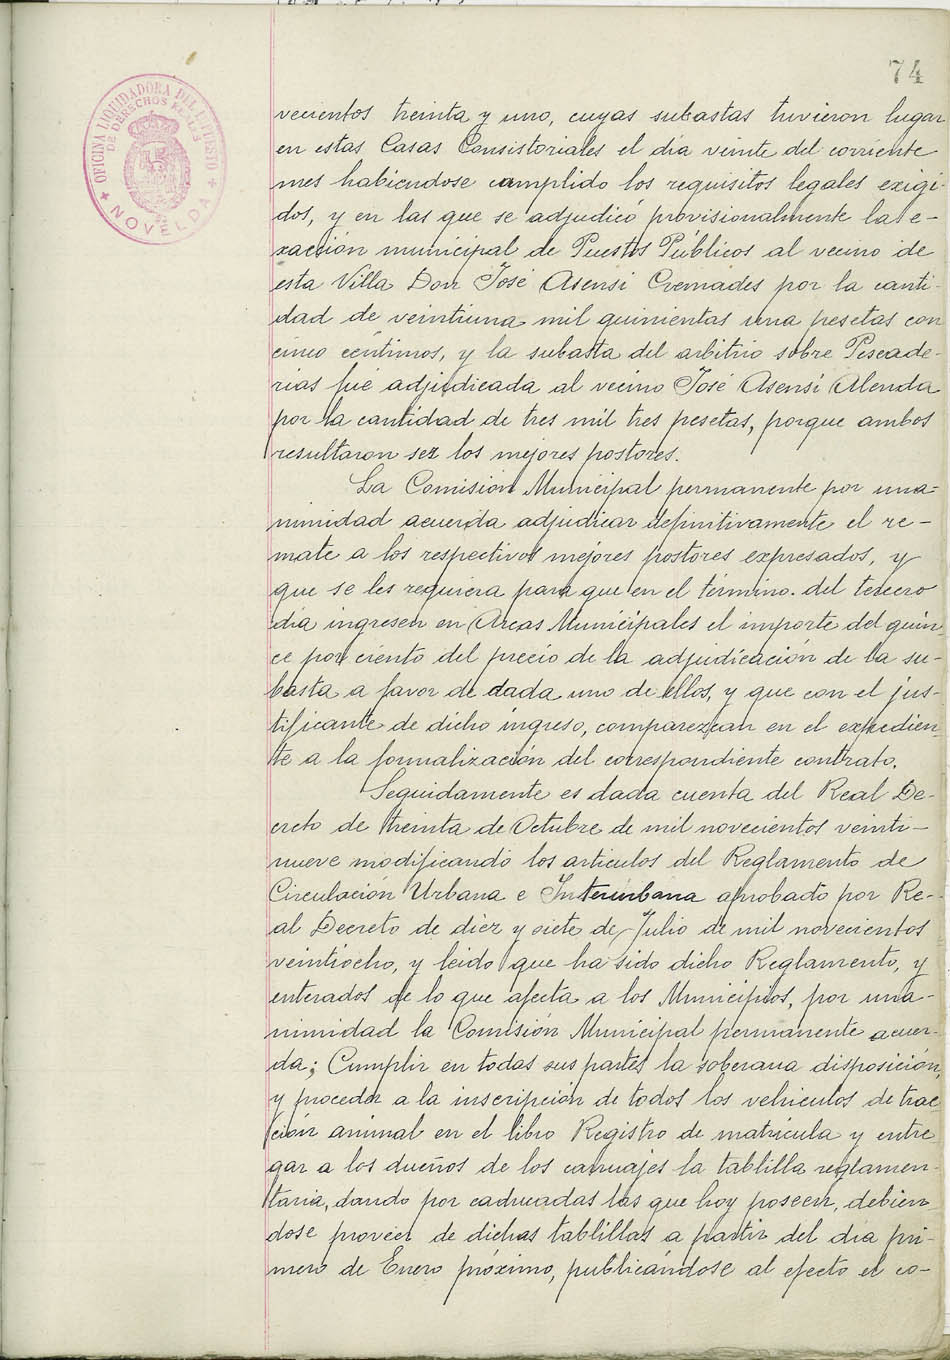 74
OFICINA LIQUIDADORA DEL IMPUESTO
DE DERECHOS REALES
NOVELDA
vecientos treinta y uno, cuyas subastas tuvieron lugar
en estas Casas Consistoriales el día veinte del corriente
mes habiendose cumplido los requisitos legales exigi-
dos, y en las que se adjudicó provisionalmente la e-
xacción municipal de Puestos Públicos al vecino de
esta Villa Don José Asensi Cremades por la canti-
dad de veintiuna mil quinientas una pesetas con
cinco centimos, y la subasta del arbitrio sobre Pescade-
rias fué adjudicada al vecino José Asensi Alenda
por la cantidad de tres mil tres pesetas, porque ambos
resultaron ser los mejores postores.
La Comisión Municipal permanente por una-
nimidad acuerda adjudicar definitivamente el re-
mate a los respectivos mejores postores expresados, y
que se les requiera para que en el término. del tercero
día ingresen en Arcas Municipales el importe del quin
ce por ciento del precio de la adjudicación de la su-
basta a favor de dada uno de ellos, y que con el jus-
tificante de dicho ingreso, comparezcan en el expedien-
te a la formalización del correspondiente contrato.
Seguidamente es dada cuenta del Real De-
creto de treinta de Octubre de mil novecientos veinti-
nueve modificando los articulos del Reglamento de
Circulación Urbana e Interurbana aprobado por Re-
al Decreto de diez y siete de Julio de mil novecientos
veintiocho, y leido que ha sido dicho Reglamento, y
enterados de lo que afecta a los Municipios, por una-
nimidad la Comisión Municipal permanente acuer-
da; Cumplir en todas sus partes la soberana disposición,
y proceder a la inscripción de todos los vehiculos de trac
ción animal en el libro Registro de matrícula y entre
gar a los dueños de los carruajes la tablilla reglamen-
taria, dando por caducadas las que hoy poseen, debien
dose proveer de dichas tablillas a partir del día pri-
mero de Enero próximo, publicándose al efecto el co-